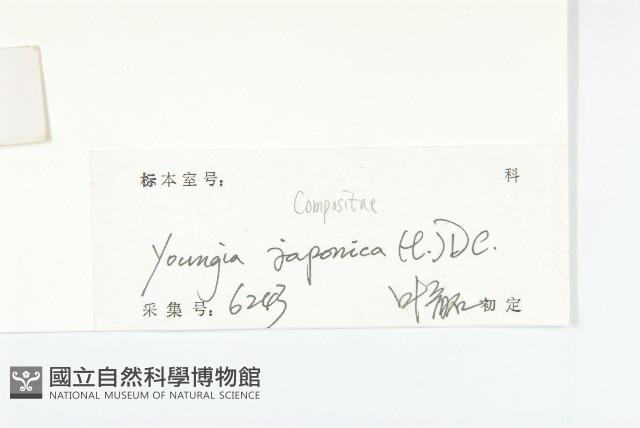 标本室号： 科
Compositae
Youngia japonica (L.) DC.
采集号： 6243 叶 初定
國立自然科學博物館
NATIONAL MUSEUM OF NATURAL SCIENCE